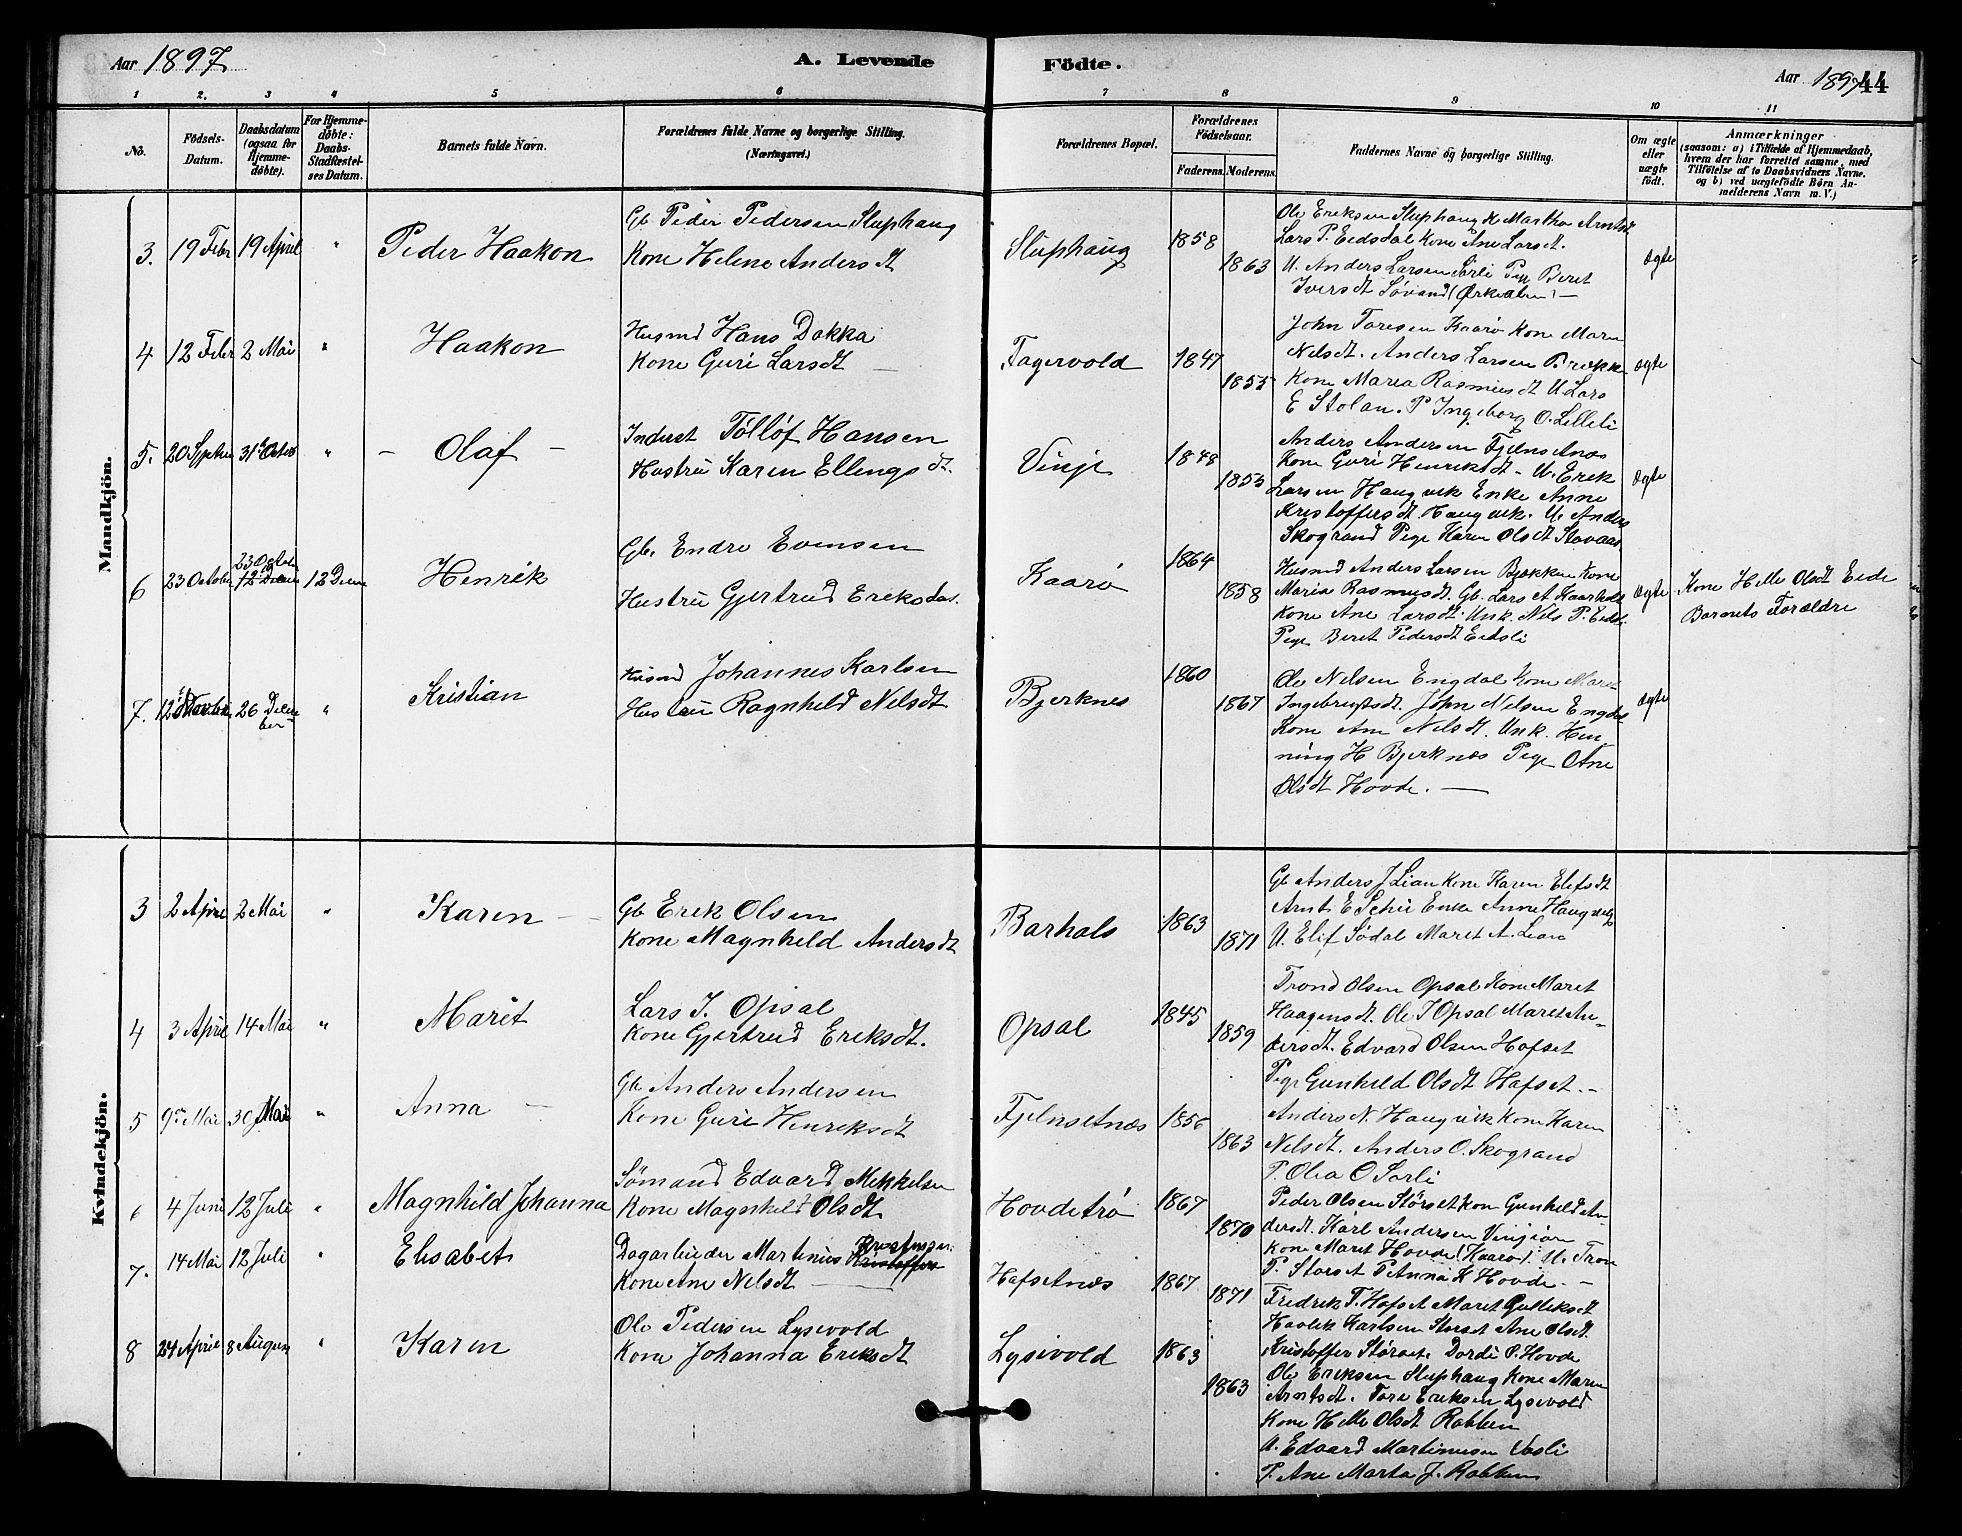 Aar 1897
A. Levende Födte.
Aar 1897
44
1 2. 3 4 5 6 7 8 9 10 11
No.
Födsels-
Datum.
Daabsdatum
(ogsaa for
Hjemme-
döbte).
For Hjemme-
döbte:
Daabs-
Stadfæstel-
ses Datum.
Barnets fulde Navn.
Forældrenes fulde Navne og borgerlige Stilling.
(Næringsvei.)
Forældrenes Bopæl.
Forældrenes
Födselsaar.
Faderens. Moderens.
Faddernes Navne og borgerlige Stilling.
Om ægte
eller
uægte
födt.
Anmærkninger
(saasom: a) i Tilfælde af Hjemmedaab,
hvem der har forrettet samme, med
Tilföielse af to Daabsvidners Navne.
og b) ved uægtefödte Börn An-
melderens Navn m. V.)
Mandkjön.
3. 19 Febr 19 April " Peder Haakon
Gb. Peder Pedersen Sluphaug
Kone Helene Andersdt
Sluphaug 1858 1863
Ole Eriksen Sluphaug K Martha Arntsdt
Lars P. Eidsdal Kone Ane Larsdt.
U. Anders Larsen Sørli Pige Beret
Iversdt Søvand (Ørkedalen) —
Ægte
4 12 Febr 2 Mai " Haakon
Husmd Hans Dakka
Kone Guri Larsdt —
Fagervold 1847 1855
John Toresen Kaarø Kone Maren
Nilsdt. Anders Larsen Brække
Kone Maria Rasmusdt U Lars
E Stolan. P Ingeborg O. Lilleli
Ægte
5. 20 Septbr 31te Octbr " – Olaf –
Inderst Tølløf Hansen
Hustru Karen Ellingsdt.
Vinje 1848 1853
Anders Andersen Fjelnsetnæs
Kone Guri Henriksdt – U. Erik
Larsen Haugvik Enke Anne
Kristoffersdt Haugvik. U. Anders
Skogrand Pige Karen Olsdt Stovaas
Ægte
6 23 October 23 October 12 Decem 12 Decem Henrik
Gb. Endre Evensen
Hustru Gjertrud Eriksdat.
Kaarø 1864 1858
Husmd Anders Larsen Brækken Kone
Maria Rasmusdt. Gb. Lars A Kaarhol
Kone Ane Larsdt. Unk. Nils P. Eidsli
Pige Beret Pedersdt Eidsli
Ægte
Kone Helle Olsdt Eide
Barnets Forældre
7. 12 26 Decem
ber " Kristian
Husmd Johannes Karlsen
Hustru Ragnhild Nilsdt
Bjerknes 1860 1867
Ole Nilsen Engdal Kone Marit
Ingebrigtsdt. John Nilsen Engdal
Kone Ane Nilsdt. Unk. Hen-
ning H Bjerknæs Pige Ane
Olsdt Hovde. —
Ægte
Kvindekjön.
3 2 April 2 Mai " Karen –
Gb Erik Olsen
Kone Magnhild Andersdt
Barhals 1863 1871
Gb Anders J Lian Kone Karen Elifsdt
Arnt E Enke Anne Haugvik
U. Elif Sødal Maret A. Lian
4 3 April 14 Mai " Marit
Lars J. Opsal
Kone Gjertrud Eriksdt.
Opsal 1845 1859
Trond Olsen Opsal Kone Maret
Haagensdt. Ole J Opsal Maret An-
dersdt. Edvard Olsen Hafset
Pige Gunhild Olsdt Hafset. –
5 9de Mai 30 Mai " Anna –
Gb Anders Andersen
Kone Guri Henriksdt
Fjelnsetnæs 1856 1863
Anders N. Haugvik Kone Karen
Nilsdt. Anders O. Skogrand
P. Olea O Sørli
6 4 Juni 12 Juli " Magnhild Johanna
Sømand Edvard Mikkelsen
Kone Magnhild Olsdt
Hovdetrø 1867 1870
Peder Olsen Størset Kone Gunhild An-
dersdt. Karl Andersen Vingian
Kone Maret Hovde (Kaarø). U. Tron
P. Størset P Anna K Hovde. –
7. 14 Mai 12 Juli " Elisabet
Dagarbeider Martinius Kristoffers
Kone Ane Nilsdt —
Hafsetnæs 1867 1871
Fredrik T. Hafset Maret Gulliksdt
Karlsen Størset Ane Olsdt.
Kristoffer Størset Dordi P. Hovde
8 24 April 8 August " Karen
Ole Pedersen Lysivold
Kone Johanna Eriksdt
Lysivold 1863 1863
Ole Eriksen Sluphaug Kone Maren
Arntsdt. Tore Eriksen Lysivold
Kone Helle Olsdt Robben
U. Edvard Martinusen Vasli
P. Ane Marta J. Robben